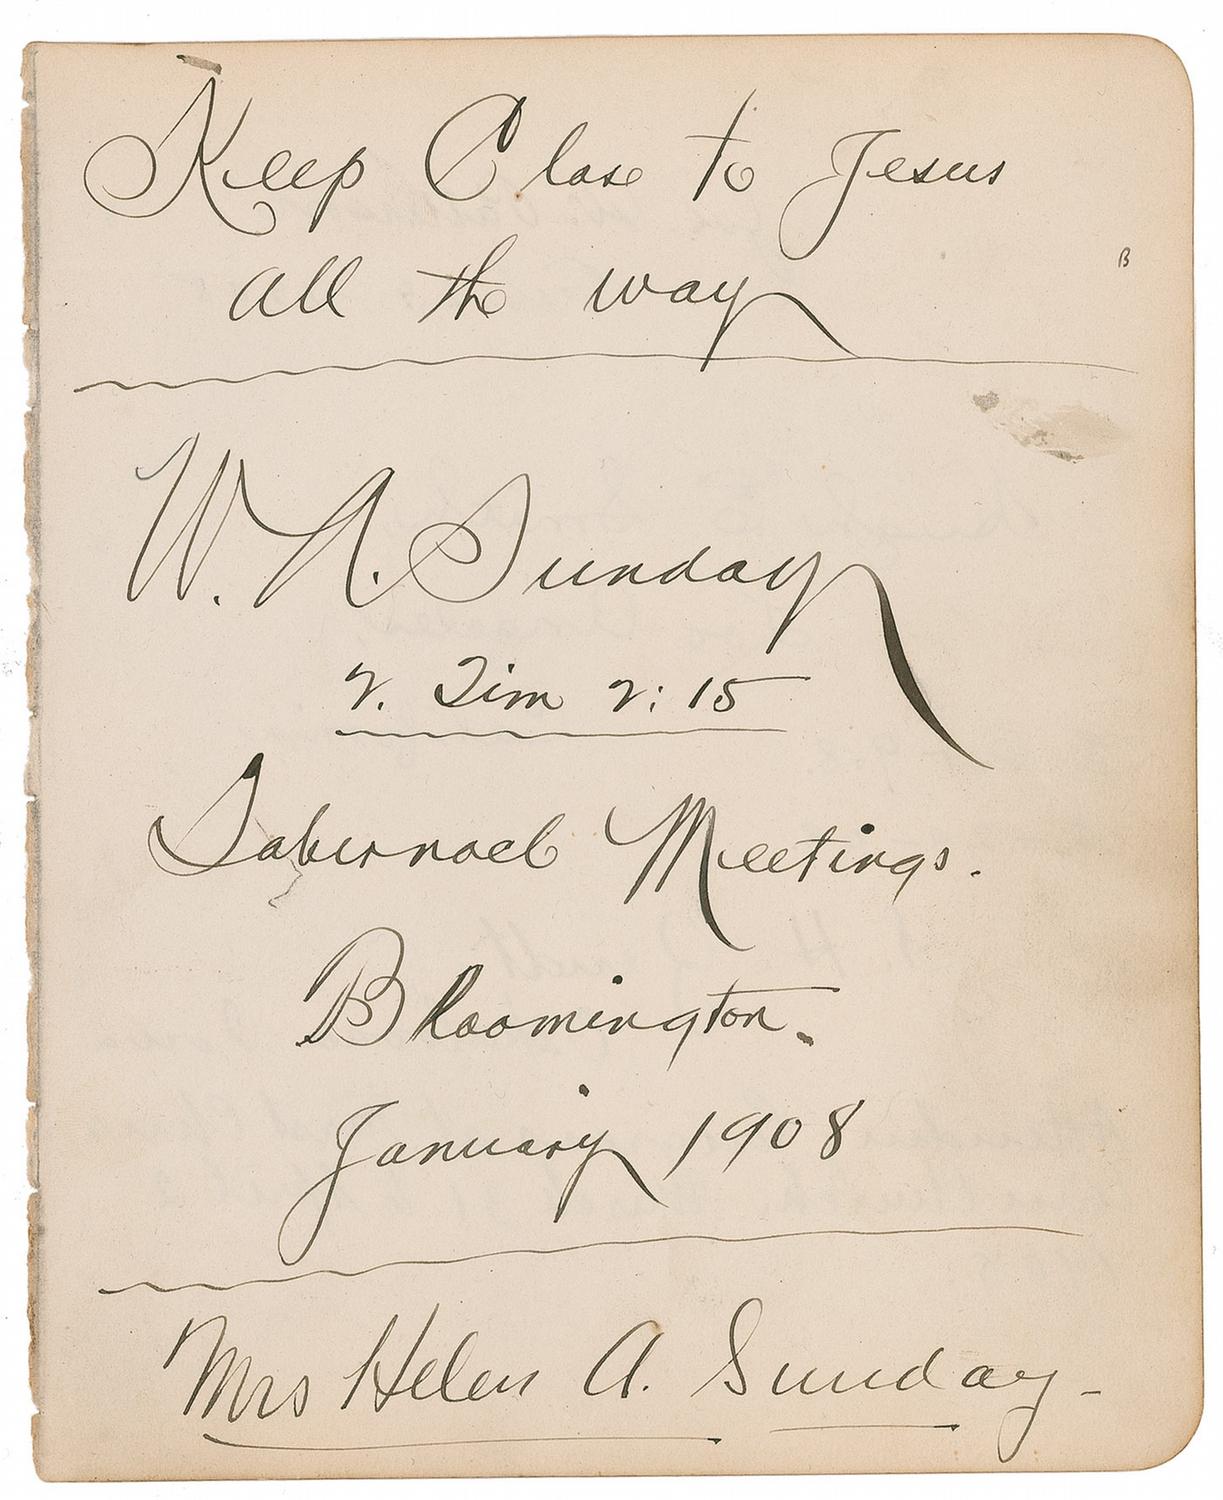 Keep Close to Jesus
all the way
B
W. A. Sunday
2. Tim 2:15
Tabernacl Meetings.
Bloomington.
January 1908
Mrs Helen A. Sunday -